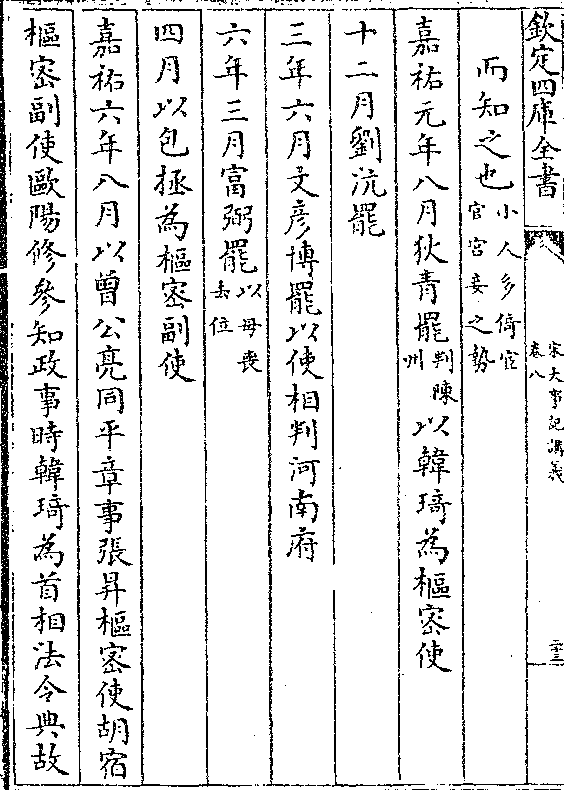 欽定四庫全書
宋大事記講義
卷八
二十三
而知之也小人多倚宦
官宮妾之勢
嘉祐元年八月狄青罷判陳
州以韓琦為樞密使
十二月劉沆罷
三年六月文彥博罷以使相判河南府
六年三月富弼罷以母喪
去位
四月以包拯為樞密副使
嘉祐六年八月以曾公亮同平章事張昇樞密使胡宿
樞密副使歐陽修參知政事時韓琦為首相法令典故